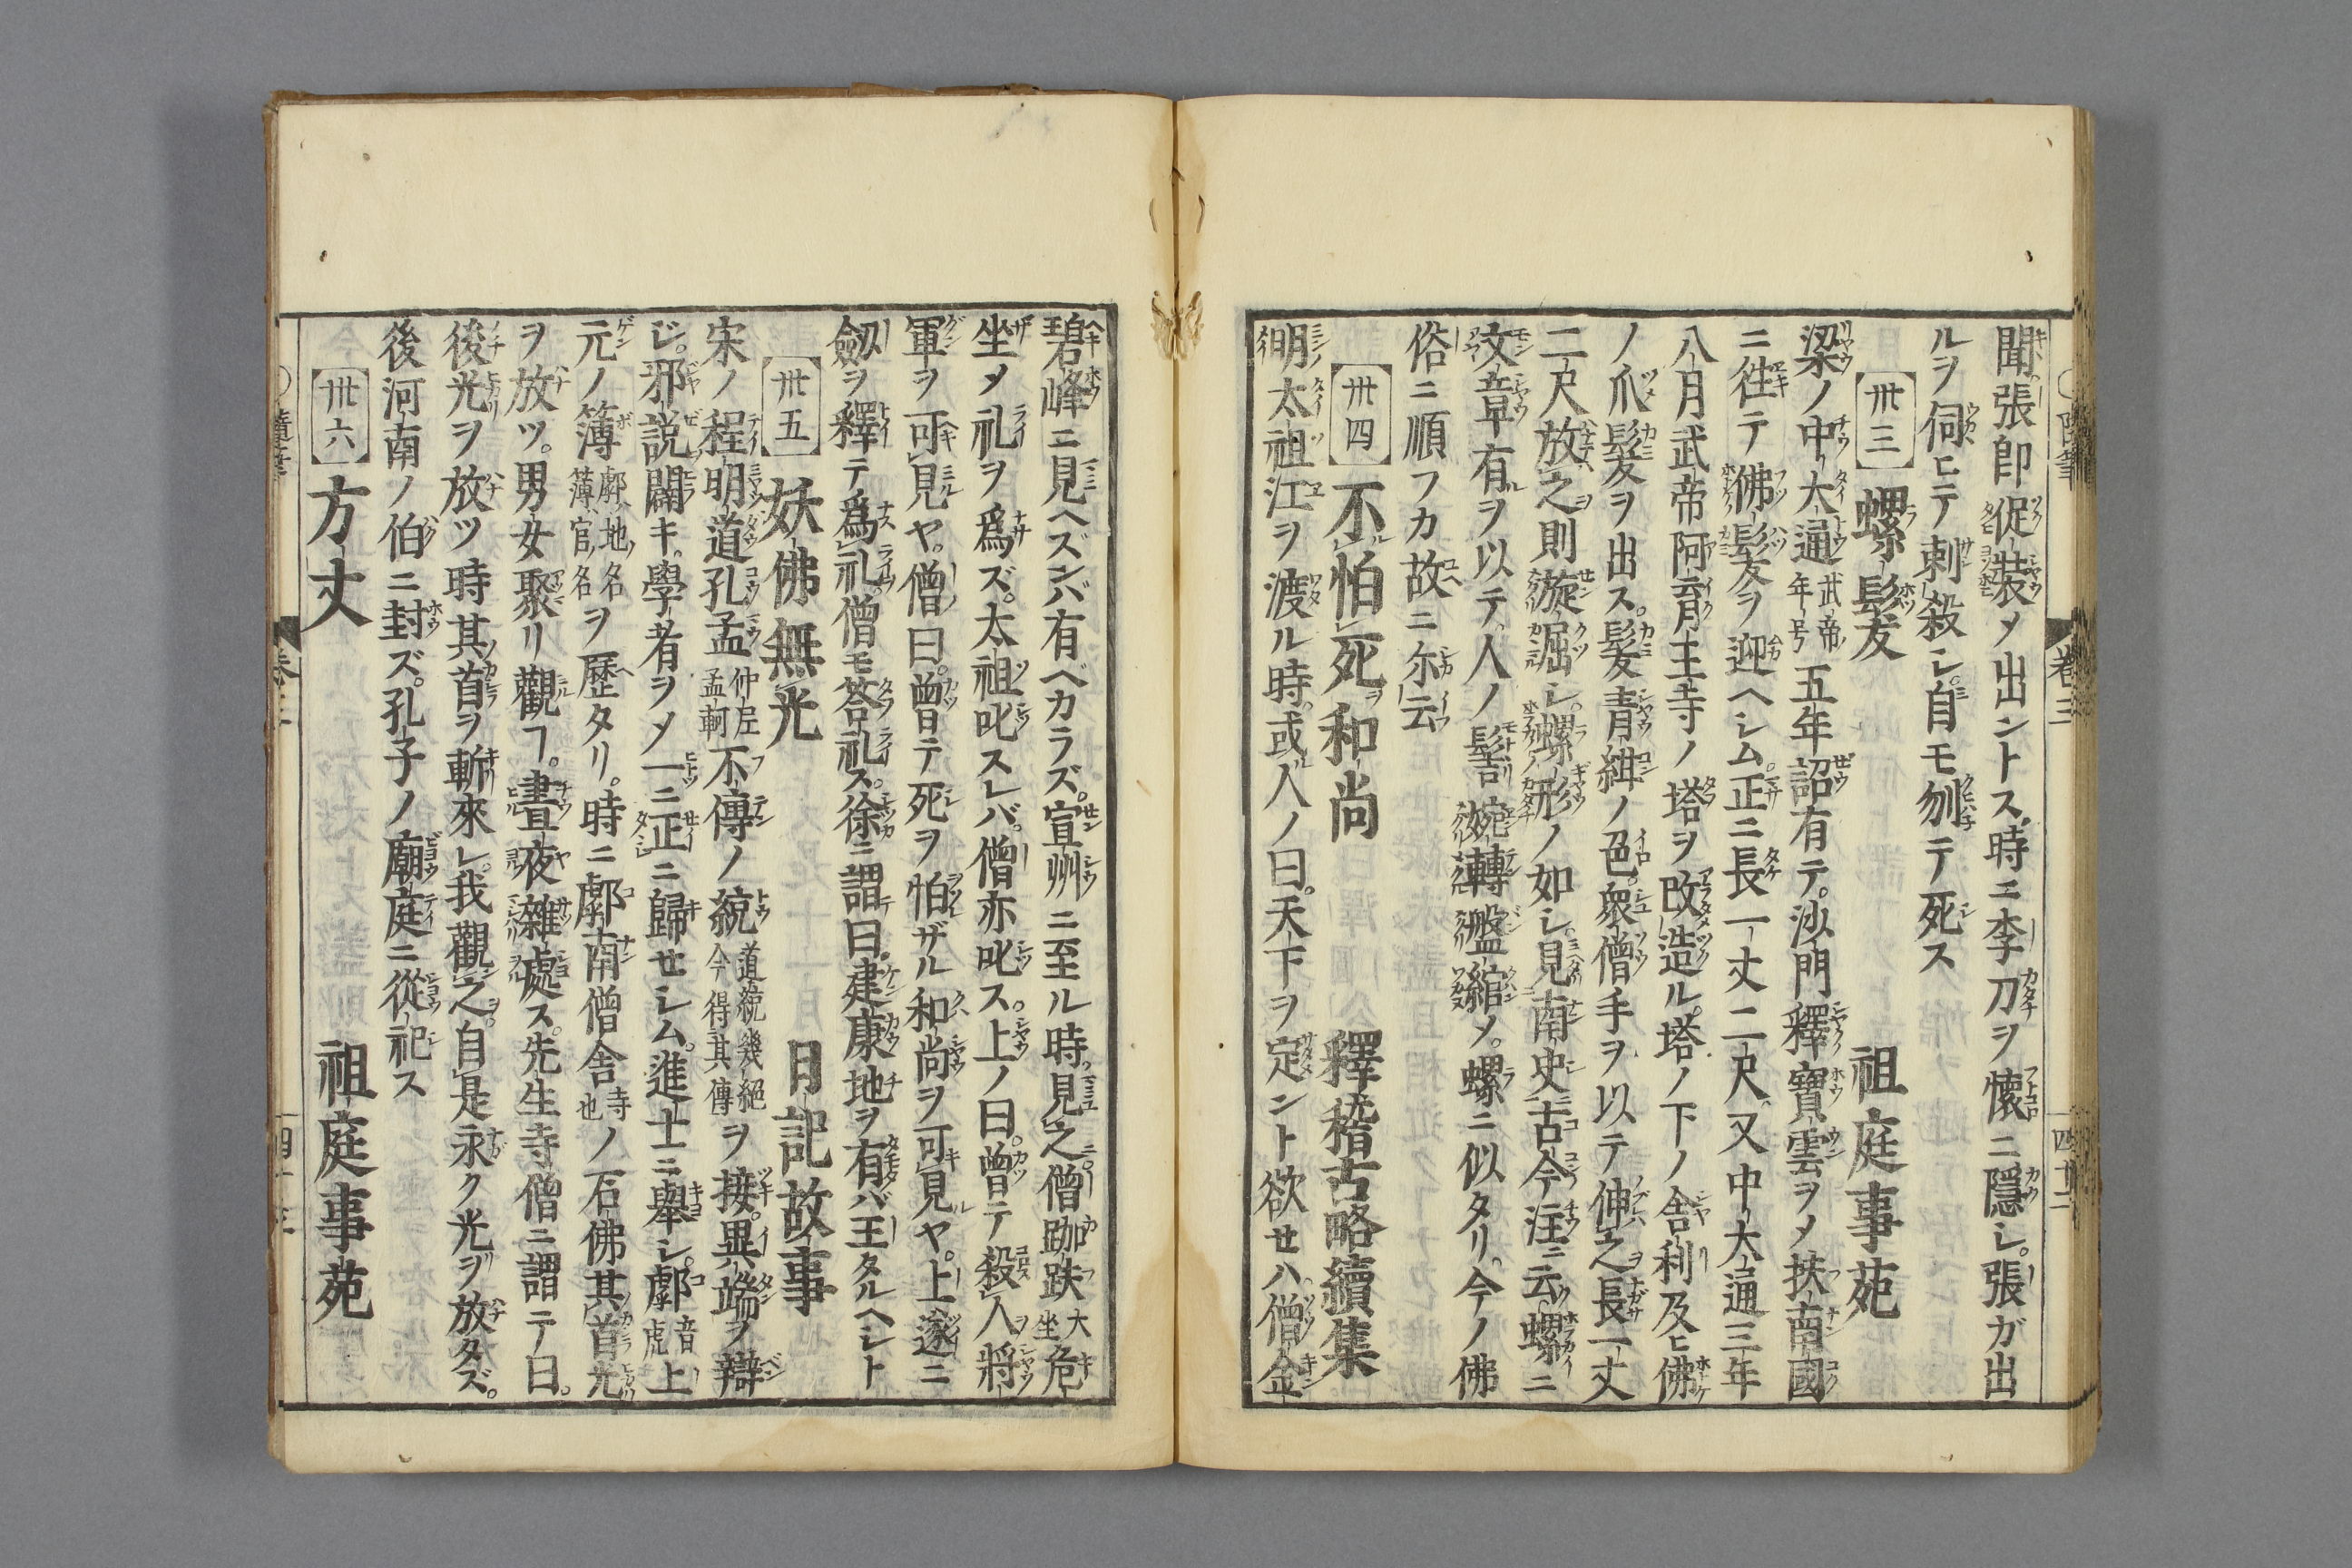 聞張即促裝メ出ントス時ニ李刀ヲ懷ニ隱シ。張ガ出
ルヲ伺ヒテ刺殺シ。自モ刎テ死ス
卅三 螺髮 祖庭事苑
梁ノ中大通武帝年号五年詔有テ。沙門釋寶雲ヲメ扶南國
ニ徃テ佛髮ヲ迎ヘシム。正ニ長一丈二尺。又中大通三年
八月武帝阿育王寺ノ塔ヲ改造ル。塔ノ下ノ舎利及ヒ佛
ノ爪髮ヲ出ス。髮青紺ノ色。衆僧手ヲ以テ伸之長一丈
二尺放之則漩屈シ。螺形ノ如シ。見南史古今注ニ云螺ニ
文章有ヲ以テ。人ノ髻婉轉盤綰メ。螺ニ似タリ。今ノ佛
俗ニ順フカ故ニ尓云
卅四 不怕死和尚 釋稽古略續集
明太祖江ヲ渡ル時。或人ノ曰。天下ヲ定ント欲セハ僧金
碧峰ニ見ヘズンバ有ベカラズ。宣州ニ至ル時見之僧跏趺大坐危
坐メ礼ヲ爲ズ。太祖叱スレバ。僧亦叱ス。上ノ曰。曽テ殺人將
軍ヲ可見ヤ。僧曰。曽テ死ヲ怕ザル和尚ヲ可見ヤ。上遂ニ
劔ヲ釋テ爲礼。僧モ荅礼ス。徐ニ謂曰。建康地ヲ有バ王タルヘシト
卅五 妖佛無光 日記故事
宋ノ程明道孔孟仲尼孟軻不傳ノ統道統幾絕今得其傳ヲ接。異端ヲ辯
ジ。邪説闢キ。學者ヲメ一ニ正ニ歸セシム。進士ニ舉シ。鄠音虎上
元ノ簿鄠地名簿官名ヲ歷タリ。時ニ鄠南僧舎寺也ノ石佛其首光
ヲ放ツ。男女聚リ觀フ。晝夜雜處ス。先生寺僧ニ謂テ曰。
後光ヲ放ツ時其首ヲ斬來レ。我觀之。自是永ク光ヲ放タズ。
後河南ノ伯ニ封ズ。孔子ノ廟庭ニ從祀ス
卅六 方丈 祖庭事苑